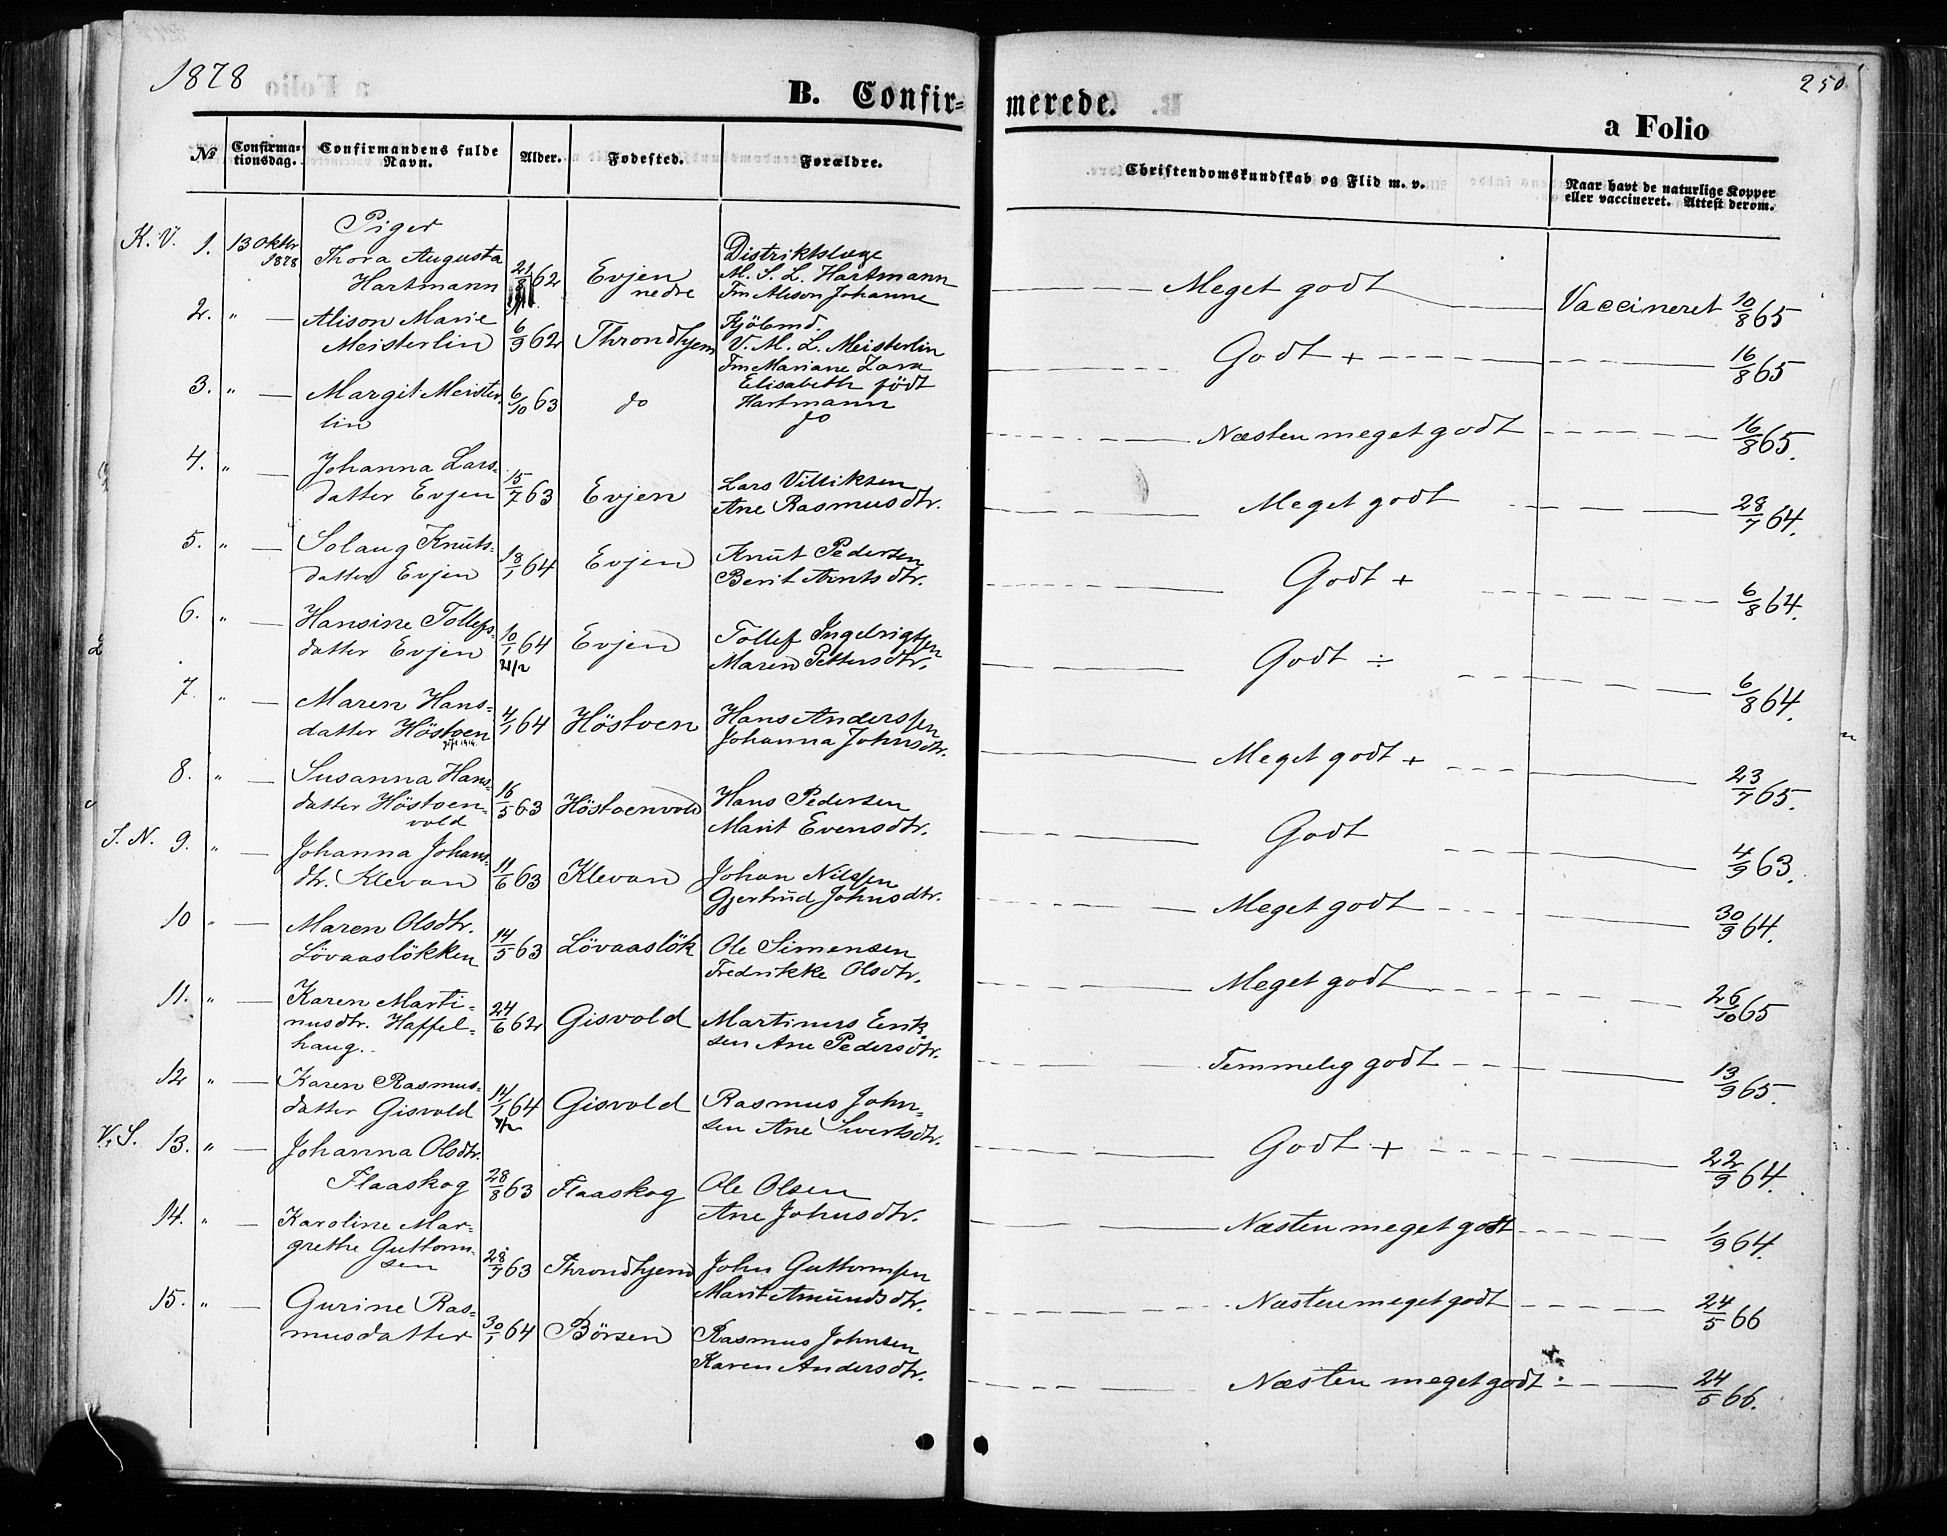 1878
B. Confir-
merede.
250
a Folio
No
Confirma-
tionsdag.
Confirmandens fulde
Navn.
Alder.
Fødested.
Forældre.
Christendomskundskab og Flid m. v.
Naar havt de naturlige Kopper
eller vaccineret. Attest derom.
Piger
K. V. 1. 13 Oktbr 1878
Thora Augusta
Hartmann
21/8 62
Evjen
nedre
Distriktslæge
M. S. L. Hartmann
Fru Alison Johanne
Meget godt
Vaccineret 10/8 65
2. " —
Alison Marie
Meisterlin
6/9 62
Throndhjem
Kjöbmd.
V. M. L. Meisterlin
Fru Mariane Lara
Elisabeth födt
Hartmann
Godt +
16/8 65
3. " —
Margit Meister-
lin
6/10 63
do
do
Næsten meget godt
16/8 65.
4. " —
Johanna Lars-
datter Evjen
15/7 63
Evjen
Lars Villiksen
Ane Rasmusdtr.
Meget godt
28/7 64.
5. " —
Solaug Knuts-
datter Evjen
18/1 64
Evjen
Knut Pedersen
Berit Arntsdtr.
Godt +
6/8 64.
6. " —
Hansine Tollefs-
datter Evjen
10/1 64
21/2
Evjen
Tollef Ingebrigtsen
Maren Pettersdtr.
Godt ÷
6/8 64.
7. " —
Maren Hans-
datter Höstoen
4/1 64
Höstoen
Hans Anderssen
Johanna Johnsdtr.
Meget godt +
23/7 65.
8. " —
Susanna Hans-
datter Höstoen-
vold
16/5 63
Höstoenvold
Hans Pedersen
Marit Evensdtr.
Godt
4/9 63.
S. N. 9. " —
Johanna Johans-
dtr. Klevan
11/6 63
Klevan
Johan Nilssen
Gjertrud Johnsdtr.
Meget godt
30/9 64.
10 " —
Maren Olsdtr.
Lövaaslökken
14/5 63
Lövaaslök
Ole Simensen
Fredrikke Olsdtr.
Meget godt
26/10 65
11. " —
Karen Marti-
nusdtr. Haffel-
haug.
24/6 62
Gisvold
Martinus Erik-
sen Ane Pedersdtr.
Temmelig godt
13/9 65.
12 " —
Karen Rasmus-
datter Gisvold
14/1 64
Gisvold
Rasmus John-
sen Ane Sivertsdtr.
Godt +
22/9 64.
V. S. 13. " —
Johanna Olsdtr.
Flaaskog
28/8 63
Flaaskog
Ole Olsen
Ane Johnsdtr.
Næsten meget godt
1/9 64.
14. " —
Karoline Mar-
grethe Guttorm-
sen
28/7 63
Throndhjem
John Guttormsen
Marit Amundsdtr.
Næsten meget godt
24/5 66
15. " —
Gurine Ras-
musdatter
30/1 64
Börsen
Rasmus Johnsen
Karen Andersdtr.
Næsten meget godt
24/5 66.